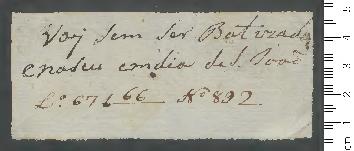 Vaj sem ser Batizada
enaseu em dia de S. João
Lº 671 66 Nº 892